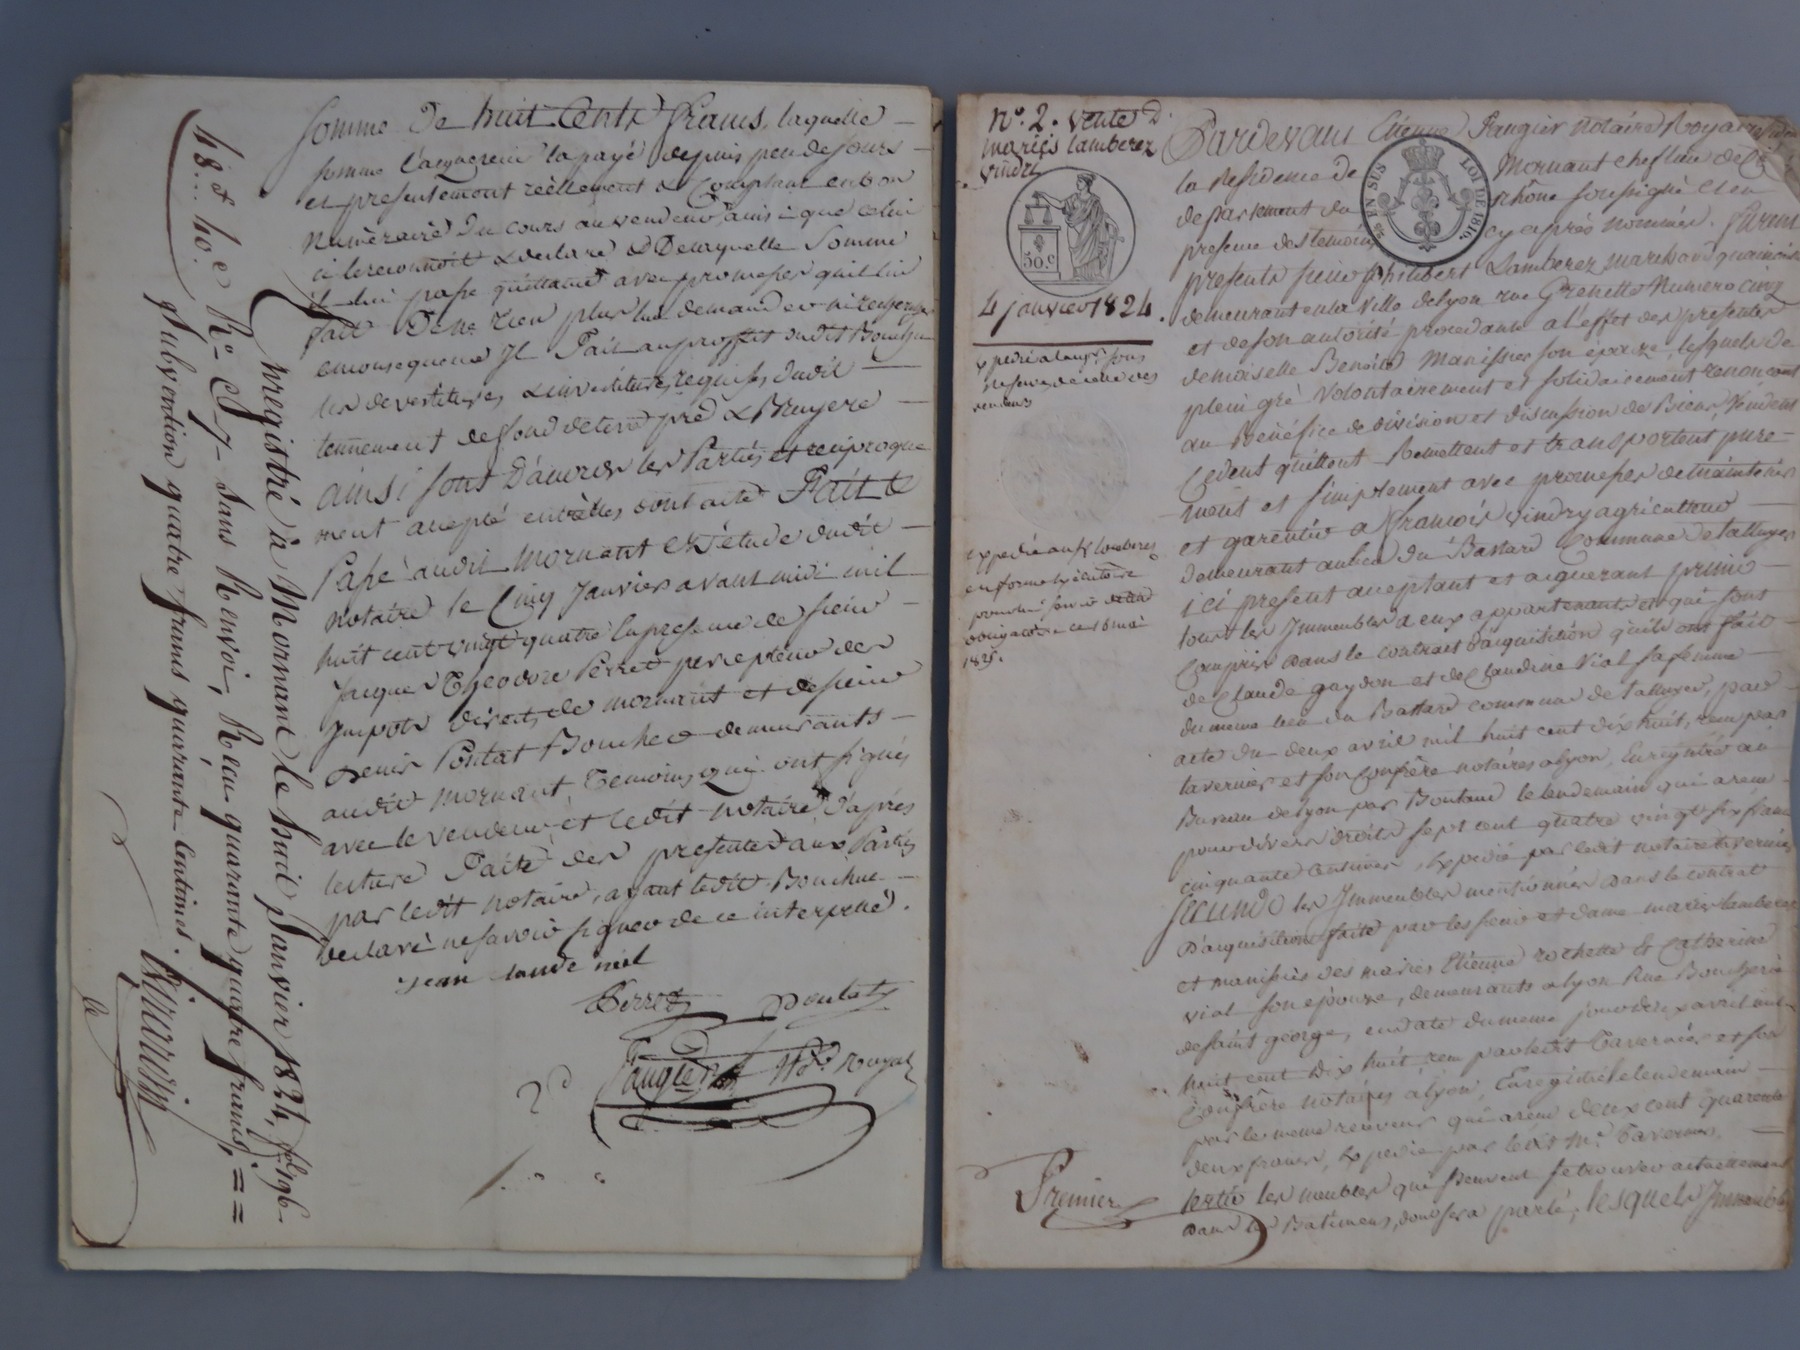 Somme De huit Cents francs, laquelle
somme l'acquereur l'a payé depuis peu de jours
et presentement réellement & Comptant en bon
Numéraire Du cours au vendeur, ainsi que celui
ci le reconnoit & declare & De laquelle Somme
il lui passe quittance avec promesses qu'il lui
fait De ne rien plus lui demander ni rechercher
en consequence Il Fait au proffit dudit
les devestitures & investitures requises dudit
tennement de fond de terre pré & Bruyere
ainsi sont D'accord les Parties et reciproque
ment accepté entr'elles dont acte Fait &
Passé audit Mornant En l'étude dudit
notaire le Cinq Janvier avant midi mil
huit cent vingt quatre la presence de sieur
Jacques Theodore Perret percepteur des
Impots directs de mornant et de sieur
Denis Poulat Boucher demeurants
audit mornant, Temoins qui ont signés
avec le vendeur et ledit notaire, d'après
lecture Faite des presentes aux Parties
par ledit notaire, ayant ledit
declaré ne savoir signer de ce interpellé.
Jean
Perret Poulat
Faugier Nre Royal
Enregistré à Mornant le huit Janvier 1824, fol 196
48 et 40 e Ro Cs 7 sans Renvoi, Recu quarante quatre francs, ==
Subvention quatre francs quarante Centimes.
No. 2. Vente D.
mariés Lamberez
vindry
50.c
4 Janvier 1824.
Expedié
reserve de celle des
vendeurs
Expedié au Sr Lamberez
en forme Executoire
obligation ce 18 mai
1825.
Pardevant Etienne Faugier Notaire Royal
la Residence de Mornant chef lieu de
25 EN SUS LOI DE 1816.
departement du rhône soussigné et en
presence des temoins cy après nommés. Furent
presents sieur Philibert Lamberez marchand
demeurant en la Ville de Lyon rue Grenette Numero cinq
et de son autorité procedante a l'effet des presentes
demoiselle Benoite Manissier son épouse, lesquels de
plein gré Volontairement et solidairement renoncant
au Benéfice de division et discussion de Biens, Vendent
Cedent quittent Remettent et transportent pure
ment et simplement avec promesses de maintenir
et garentir a François vindry agriculteur
demeurant au lieu du Bastard Commune de talluyer
ici present acceptant et aquerant primo
tous les Immeubles a eux appartenants et qui sont
Compris dans le contrat d'acquisition qu'ils ont fait
de Claude gaydon et de Claudine Vial sa femme
du meme lieu du Bastard commune de talluyer, par
acte du deux avril mil huit cent dix huit, recu par
tavernier et son Confrère notaires a lyon, Enregistré au
Bureau de Lyon par Boutaud le lendemain qui a recu
pour divers droits sept cent quatre vingt six francs
cinquante centimes, Expedié par ledit notaire tavernier
Secundo les Immeubles mentionnés Dans le contrat
D'acquisition faite par les sieur et dame mariés Lamberez
et manissier des mariés Etienne rochette & Catherine
vial son épouse, demeurants a lyon Rue Boucherie
de saint george, en date du meme jour deux avril mil
huit cent Dix huit, recu par ledit Tavernier et son
Confrère notaires a lyon, Enregistré le lendemain
par le meme receveur qui a recu deux cent quarente
deux francs, Expedié par ledit Me. Tavernier.
Premier
tertio les meubles qui peuvent se trouver actuellement
dans les Batimens, dont sera parlé, lesquels Immeubles